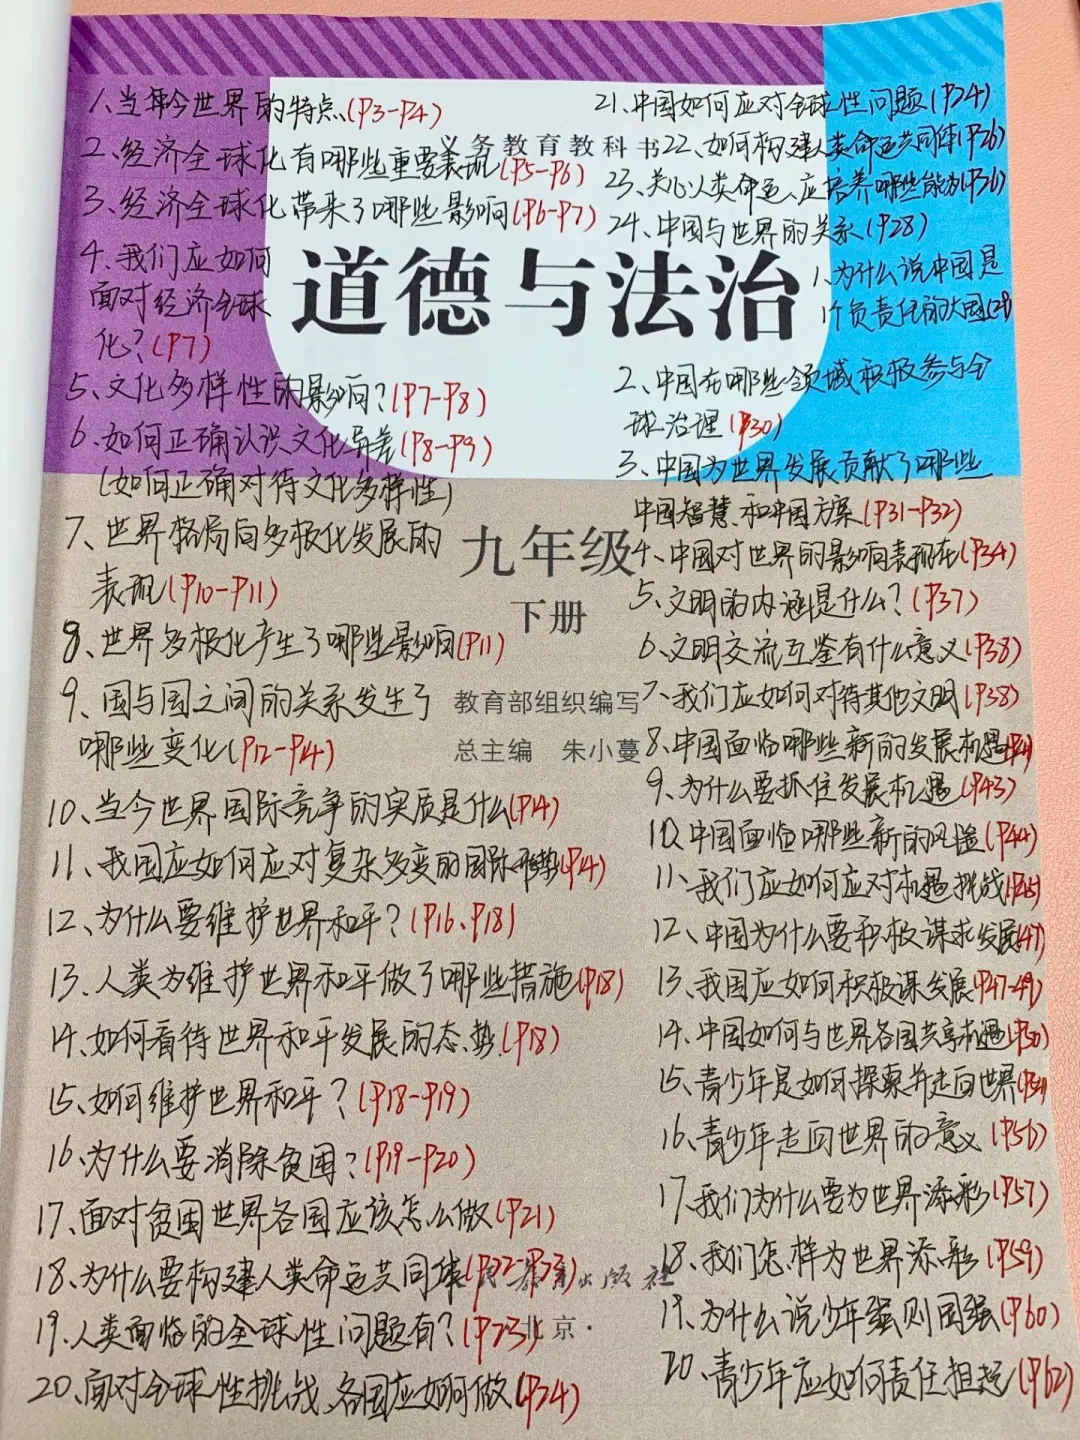 1、当今世界的特点(P3-P4)
2、经济全球化有哪些重要表现(P5-P6)
3、经济全球化带来了哪些影响(P6-P7)
4、我们应如何
面对经济全球
化？(P7)
5、文化多样性的影响？(P7-P8)
6、如何正确认识文化差异(P8-P9)
(如何正确对待文化多样性)
7、世界格局向多极化发展的
表现(P10-P11)
8、世界多极化产生了哪些影响(P11)
9、国与国之间的关系发生了
哪些变化(P12-P14)
10、当今世界国际竞争的实质是什么(P14)
11、我国应如何应对复杂多变的国际形势(P14)
12、为什么要维护世界和平？(P16、P18)
13、人类为维护世界和平做了哪些措施(P18)
14、如何看待世界和平发展的态势(P18)
15、如何维护世界和平？(P18-P19)
16、为什么要消除贫困？(P19-P20)
17、面对贫困世界各国应该怎么做(P21)
18、为什么要构建人类命运共同体(P22-P23)
19、人类面临的全球性问题有？(P23)
20、面对全球性挑战、各国应如何做(P24)
义务教育教科书
道德与法治
九年级
下册
教育部组织编写
总主编 朱小蔓
教育出版社
·北京·
21、中国如何应对全球性问题(P24)
22、如何构建人类命运共同体(P26)
23、关心人类命运、应培养哪些能力(P26)
24、中国与世界的关系(P28)
1、为什么说中国是
1个负责任的大国(28)
2、中国在哪些领域积极参与全
球治理(P30)
3、中国为世界发展贡献了哪些
中国智慧、和中国方案(P31-P32)
4、中国对世界的影响表现在(P34)
5、文明的内涵是什么？(P37)
6、文明交流互鉴有什么意义(P38)
7、我们应如何对待其他文明(P38)
8、中国面临哪些新的发展机遇
9、为什么要抓住发展机遇(P43)
10、中国面临哪些新的风险(P44)
11、我们应如何应对机遇挑战(P45)
12、中国为什么要积极谋求发展(47)
13、我国应如何积极谋发展(P47-49)
14、中国如何与世界各国共享机遇(P50)
15、青少年是如何探索并走向世界
16、青少年走向世界的意义(P56)
17、我们为什么要为世界添彩(P57)
18、我们怎样为世界添彩(P59)
19、为什么说少年强则国强(P60)
20、青少年应如何责任担起(P62)